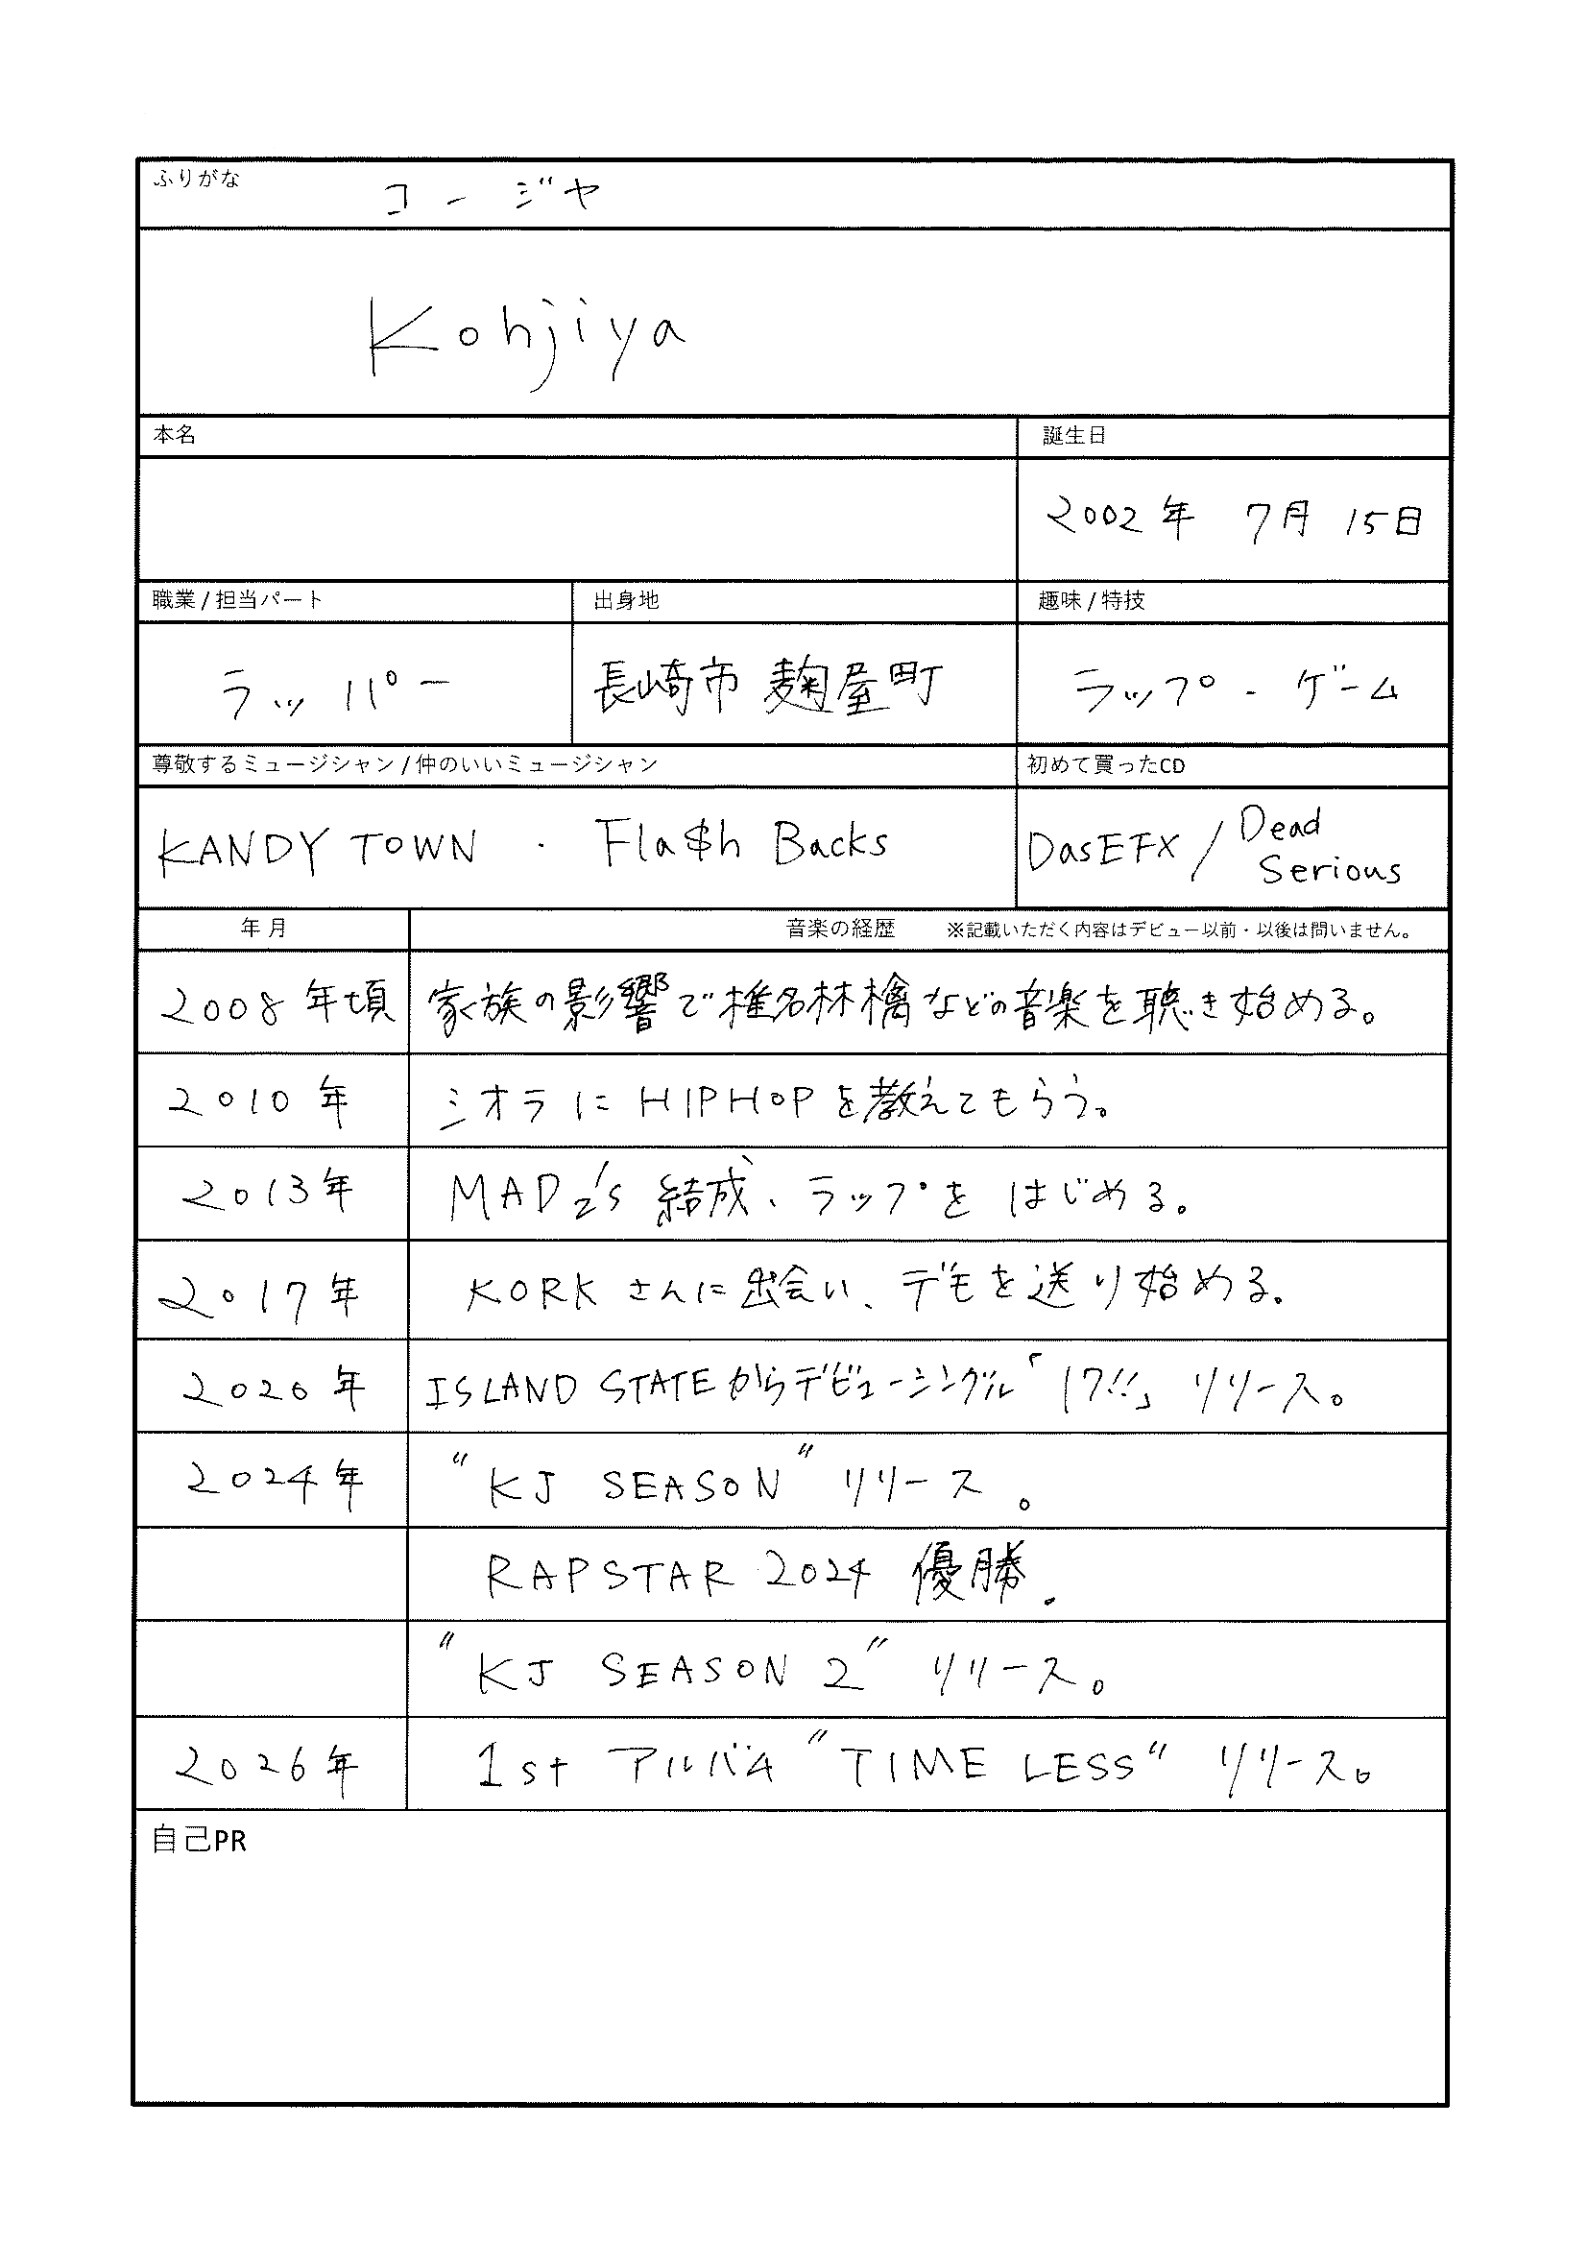 ふりがな
コージヤ
Kohjiya
本名
誕生日
2002年 7月 15日
職業 / 担当パート
出身地
趣味 / 特技
ラッパー
長崎市 麹屋町
ラップ・ゲーム
尊敬するミュージシャン / 仲のいいミュージシャン
初めて買ったCD
KANDY TOWN ・ Fla$h Backs
DasEFX / Dead
Serious
年月
音楽の経歴 ※記載いただく内容はデビュー以前・以後は問いません。
2008年頃 家族の影響で椎名林檎などの音楽を聴き始める。
2010年 シオラにHIPHOPを教えてもらう。
2013年 MADz's 結成、ラップをはじめる。
2017年 KORKさんに出会い、デモを送り始める。
2020年 ISLAND STATEからデビューシングル「17!!」リリース。
2024年 "KJ SEASON" リリース。
RAPSTAR 2024 優勝.
"KJ SEASON 2" リリース。
2026年 1st アルバム "TIME LESS" リリース。
自己PR